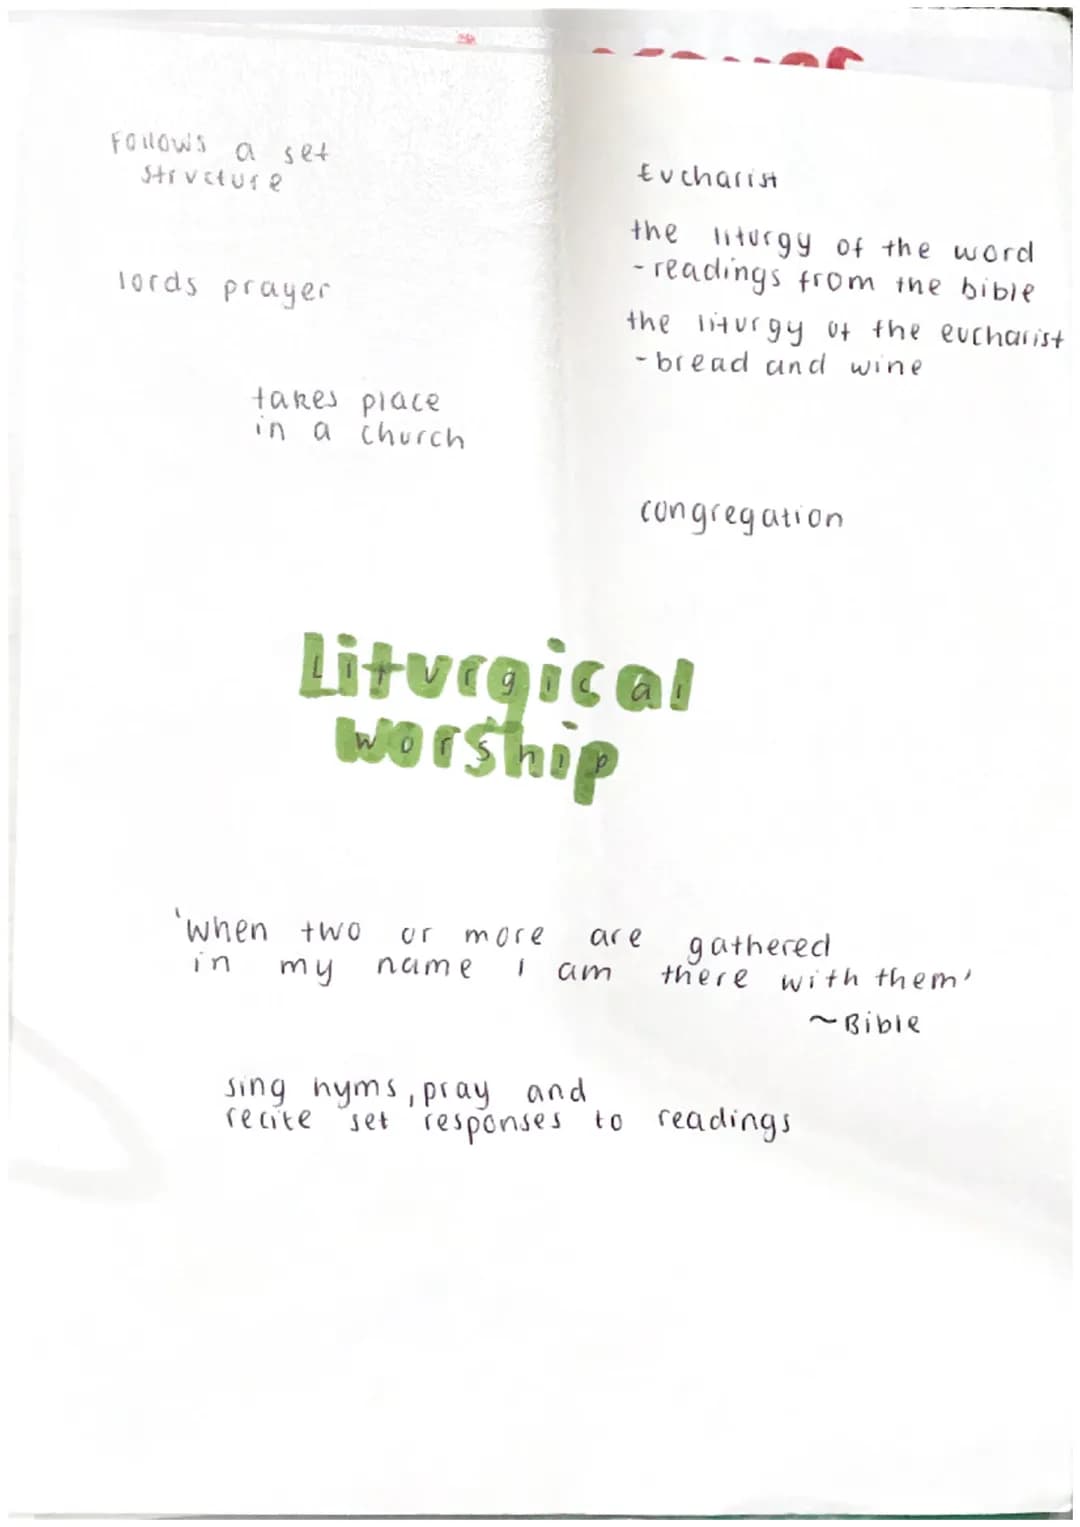 Follows a set
structure
lords prayer
takes place
in a church
Eucharist
the liturgy of the word
-readings from the bible
the liturgy of the eucharist
-bread and wine
congregation
Liturgical
worship
'when two or more are gathered
in my name I am there with them'
~Bible
sing hyms, pray and
recite set responses to readings